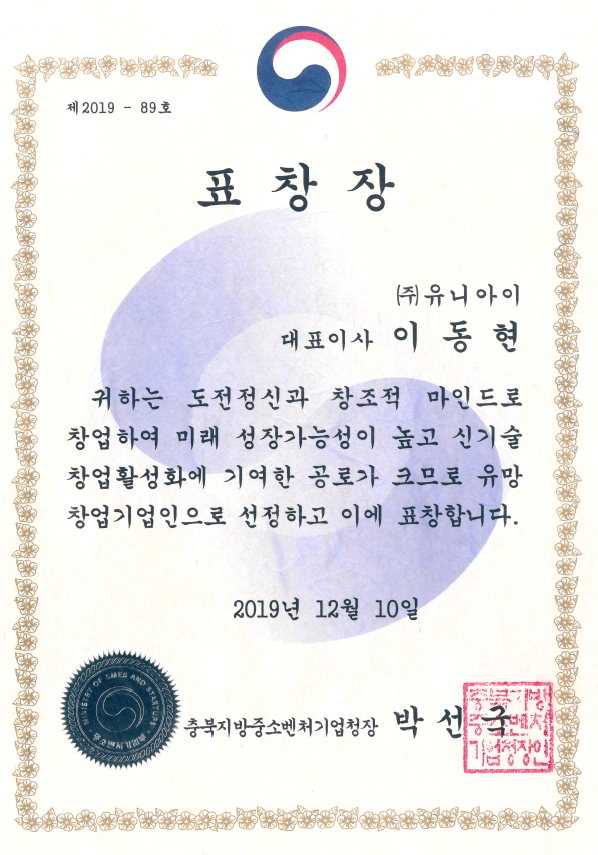 제2019 - 89호
표 창 장
㈜유니아이
대표이사 이 동 현
귀하는 도전정신과 창조적 마인드로
창업하여 미래 성장가능성이 높고 신기술
창업활성화에 기여한 공로가 크므로 유망
창업기업인으로 선정하고 이에 표창합니다.
2019년 12월 10일
MINISTRY OF SMES AND STARTUPS
중소벤처기업부
충북지방중소벤처기업청장 박 선 국
충북지방
중소벤처
기업청장인